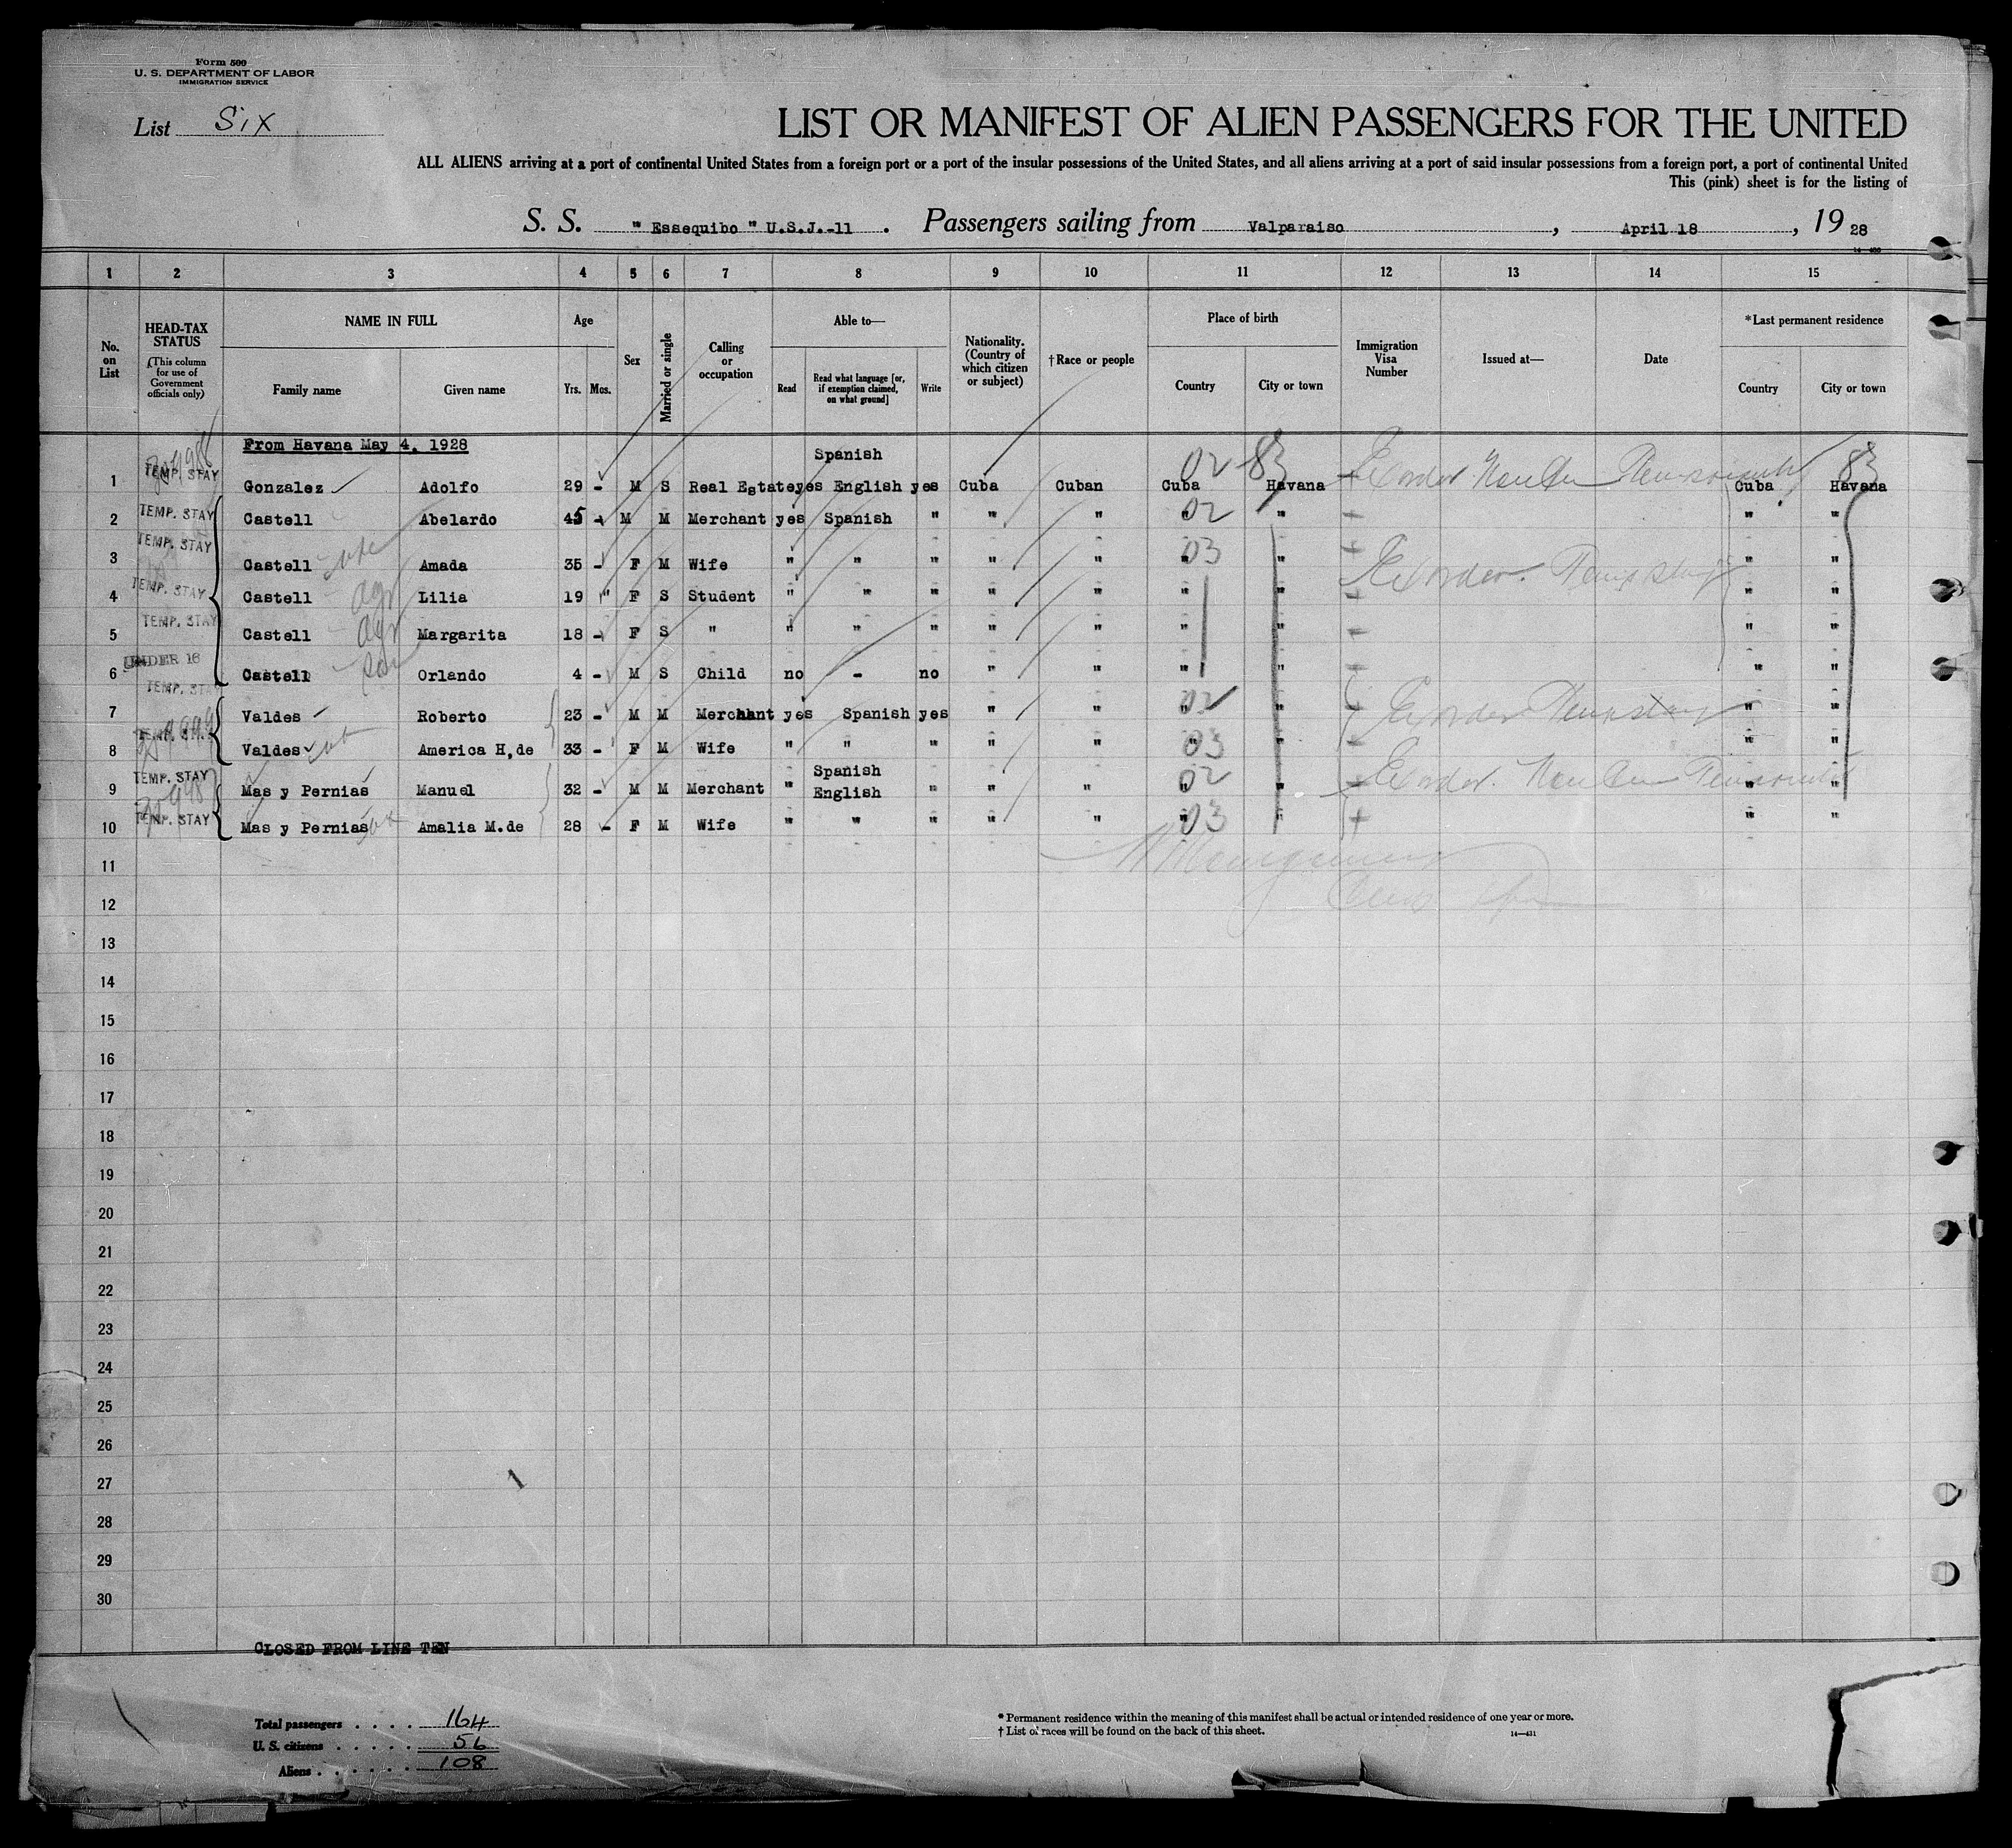 Form 500
U. S. DEPARTMENT OF LABOR
IMMIGRATION SERVICE
List Six
LIST OR MANIFEST OF ALIEN PASSENGERS FOR THE UNITED
ALL ALIENS arriving at a port of continental United States from a foreign port or a port of the insular possessions of the United States, and all aliens arriving at a port of said insular possessions from a foreign port, a port of continental United
This (pink) sheet is for the listing of
S. S. " Essequibo " U.S.J.-11 . Passengers sailing from Valparaiso , April 18 , 19 28
1 2 3 4 5 6 7 8 9 10 11 12 13 14 15
No. on List
HEAD-TAX STATUS (This column for use of Government officials only)
NAME IN FULL Family name Given name
Age Yrs. Mos.
Sex
Married or single
Calling or occupation
Able to— Read Read what language [or, if exemption claimed, on what ground] Write
Nationality. (Country of which citizen or subject)
†Race or people
Place of birth Country City or town
Immigration Visa Number
Issued at—
Date
*Last permanent residence Country City or town
From Havana May 4, 1928
Spanish
1 TEMP. STAY Gonzalez Adolfo 29 - M S Real Estate yes English yes Cuba Cuban Cuba Havana Cuba Havana
02 83 83
2 TEMP. STAY Castell Abelardo 45 - M M Merchant yes Spanish " " " 02 " " " "
3 TEMP. STAY Castell wife Amada 35 - F M Wife " " " " " 03 " " " "
4 TEMP. STAY Castell Lilia 19 " F S Student " " " " " " " " "
5 TEMP. STAY Castell Margarita 18 - F S " " " " " " " " " "
6 UNDER 16 Castell son Orlando 4 - M S Child no - no " " " " " "
7 TEMP. STAY Valdes Roberto 23 - M M Merchant yes Spanish yes " " 02 " " "
8 TEMP. STAY Valdes America H. de 33 - F M Wife " " " " " 03 " " " "
Spanish
9 TEMP. STAY Mas y Pernias Manuel 32 - M M Merchant " English " " " 02 " " " "
10 TEMP. STAY Mas y Pernias Amalia M. de 28 - F M Wife " " " " " 03 " " " "
11
12
13
14
15
16
17
18
19
20
21
22
23
24
25
26
27
28
29
30
CLOSED FROM LINE TEN
Total passengers . . . . 164
U. S. citizens . . . . . 56
Aliens . . . . . . 108
* Permanent residence within the meaning of this manifest shall be actual or intended residence of one year or more.
† List of races will be found on the back of this sheet.
14—431